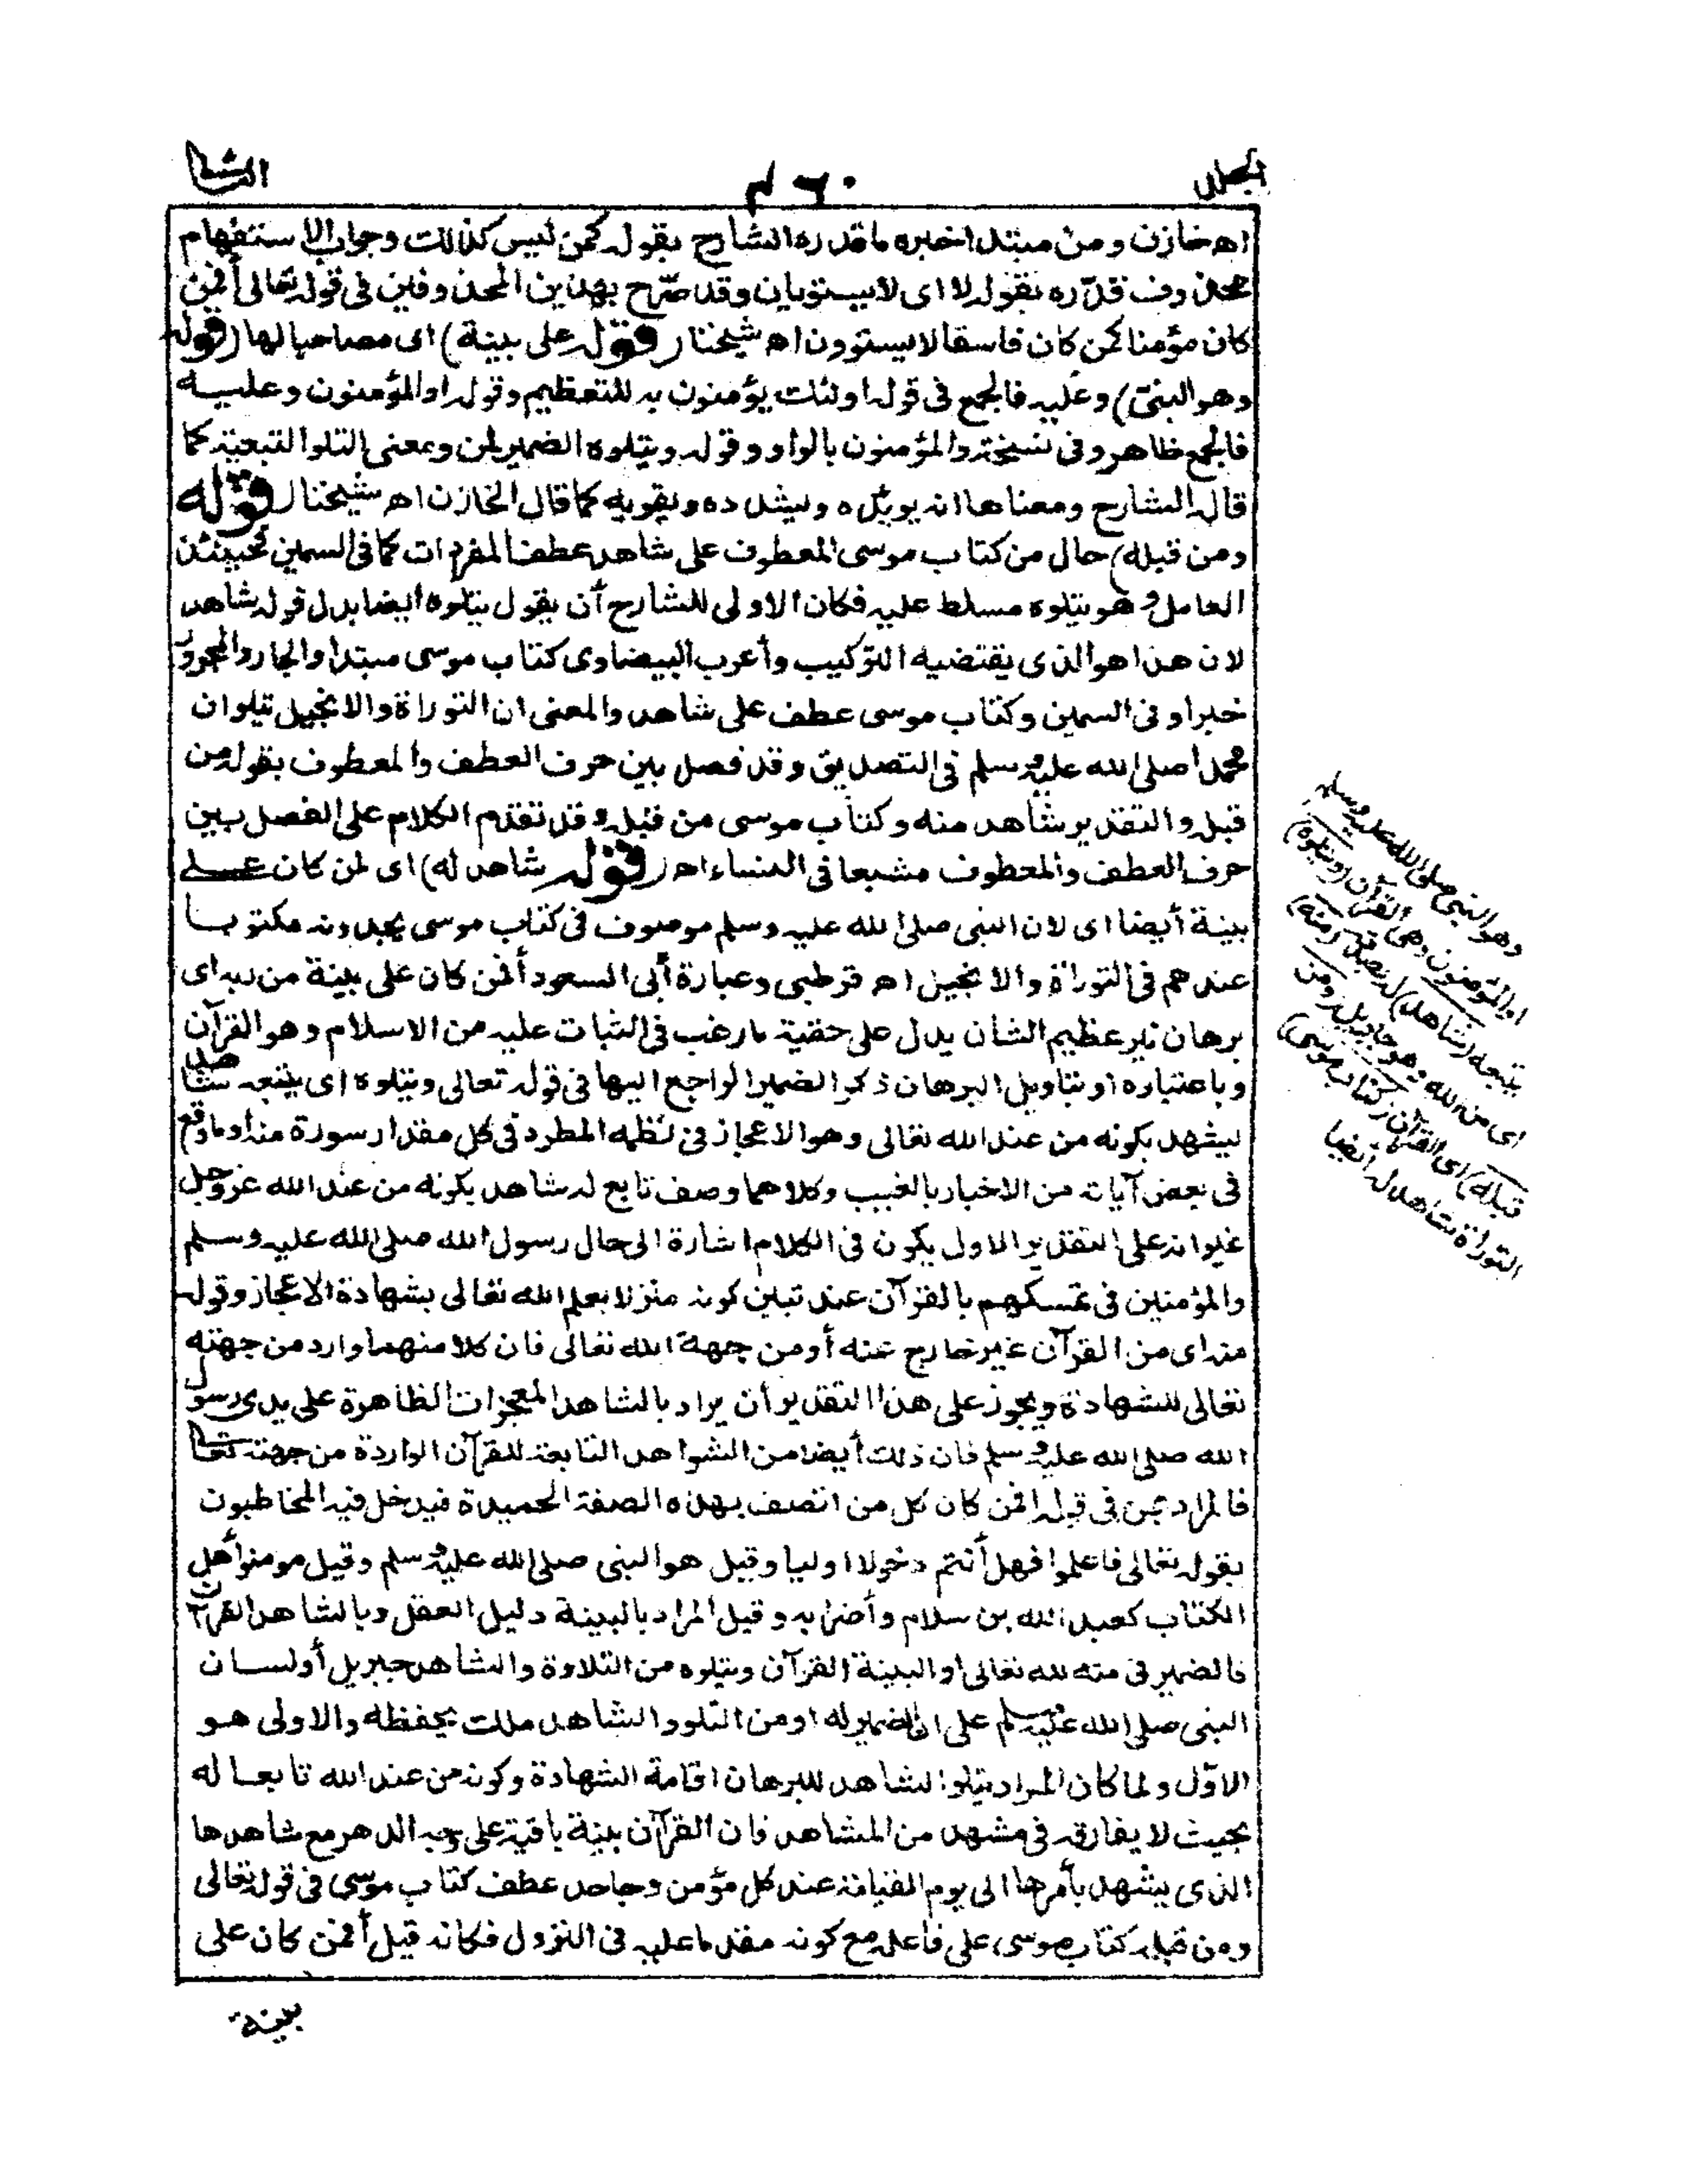 الجمل
٤٦٠
الثانى
اه خازن ومن مبتدا خبره ما قدره الشارح بقوله كمن ليس كذلك وجواب الاستفهام
محذوف قدّره بقوله لا اى لا يستويان وقد صرّح بهذين المحذوفين فى قوله تعالى أفمن
كان مؤمنا كمن كان فاسقا لا يستوون اه شيخنا (قوله على بينة) اى مصاحبا لها (قوله
وهو النبىّ) وعليه فالجمع فى قوله اولئك يؤمنون به للتعظيم وقوله او المؤمنون وعليه
فالجمع ظاهر وفى نسخة والمؤمنون بالواو وقوله ويتلوه الضمير لمن ومعنى التلو التبعية كما
قال الشارح ومعناها انه يؤيده ويشدده ويقويه كما قال الخازن اه شيخنا (قوله
ومن قبله) حال من كتاب موسى المعطوف على شاهد عطف المفردات كما فى السمين فحينئذ
العامل وهو يتلوه مسلط عليه فكان الاولى للشارح أن يقول يتلوه ايضا بدل قوله شاهد
لان هذا هو الذى يقتضيه التركيب وأعرب البيضاوى كتاب موسى مبتدا والجار والمجرور
خبرا وفى السمين وكتاب موسى عطف على شاهد والمعنى ان التوراة والانجيل يتلوان
محمدا صلى الله عليه وسلم فى التصديق وقد فصل بين حرف العطف والمعطوف بقوله من
قبله والتقدير شاهد منه وكتاب موسى من قبله وقد تقدم الكلام على الفصل بين
حرف العطف والمعطوف مشبعا فى النساء اه (قوله شاهد له) اى لمن كان على
بينة أيضا اى لان النبى صلى الله عليه وسلم موصوف فى كتاب موسى يجدونه مكتوبا
عندهم فى التوراة والانجيل اه قرطبى وعبارة أبى السعود أفمن كان على بينة من ربه اى
برهان نير عظيم الشان يدل على حقية ما رغب فى الثبات عليه من الاسلام وهو القرآن
وباعتباره او بتاويل البرهان ذكر الضمير الراجع اليها فى قوله تعالى ويتلوه اى يتبعه شاهد
ليشهد بكونه من عند الله تعالى وهو الاعجاز فى نظمه المطرد فى كل مقدار سورة منه او ما وقع
فى بعض آياته من الاخبار بالغيب وكلاهما وصف تابع له شاهد بكونه من عند الله عز وجل
غير انه على التقدير الاول يكون فى الكلام اشارة الى حال رسول الله صلى الله عليه وسلم
والمؤمنين فى تمسكهم بالقرآن عند تبين كونه منزلا بعلم الله تعالى بشهادة الاعجاز وقوله
منه اى من القرآن غير خارج عنه أو من جهة الله تعالى فان كلا منهما وارد من جهته
تعالى للشهادة ويجوز على هذا التقدير أن يراد بالشاهد المعجزات الظاهرة على يدى رسول
الله صلى الله عليه وسلم فان ذلك أيضا من الشواهد التابعة للقرآن الواردة من جهته تعالى
فالمراد بمن فى قوله افمن كان كل من اتصف بهذه الصفة الحميدة فيدخل فيه المخاطبون
بقوله تعالى فاعلموا فهل أنتم دخولا اوليا وقيل هو النبى صلى الله عليه وسلم وقيل مومنوا أهل
الكتاب كعبد الله بن سلام وأضرابه وقيل المراد بالبينة دليل العقل وبالشاهد القرآن
فالضمير فى منه لله تعالى او البينة القرآن ويتلوه من التلاوة والشاهد جبريل أو لسان
النبى صلى الله عليه وسلم على ان الضمير له او من التلو والشاهد ملك يحفظه والاولى هو
الاوّل ولما كان المراد بتلو الشاهد للبرهان اقامة الشهادة وكونه من عند الله تابعا له
بحيث لا يفارقه فى مشهد من المشاهد فان القرآن بينة باقية على وجه الدهر مع شاهدها
الذى يشهد بأمرها الى يوم القيامة عند كل مؤمن وجاحد عطف كتاب موسى فى قوله تعالى
ومن قبله كتاب موسى على فاعله مع كونه مقدما عليه فى النزول فكانه قيل أفمن كان على
بينة
وهو النبى صلى الله عليه وسلم
او المؤمنون وهى القرآن (ويتلوه)
يتبعه (شاهد) له يصدقه (منه)
اى من الله وهو جبريل (ومن
قبله) اى القرآن (كتاب موسى)
التوراة شاهد له ايضا